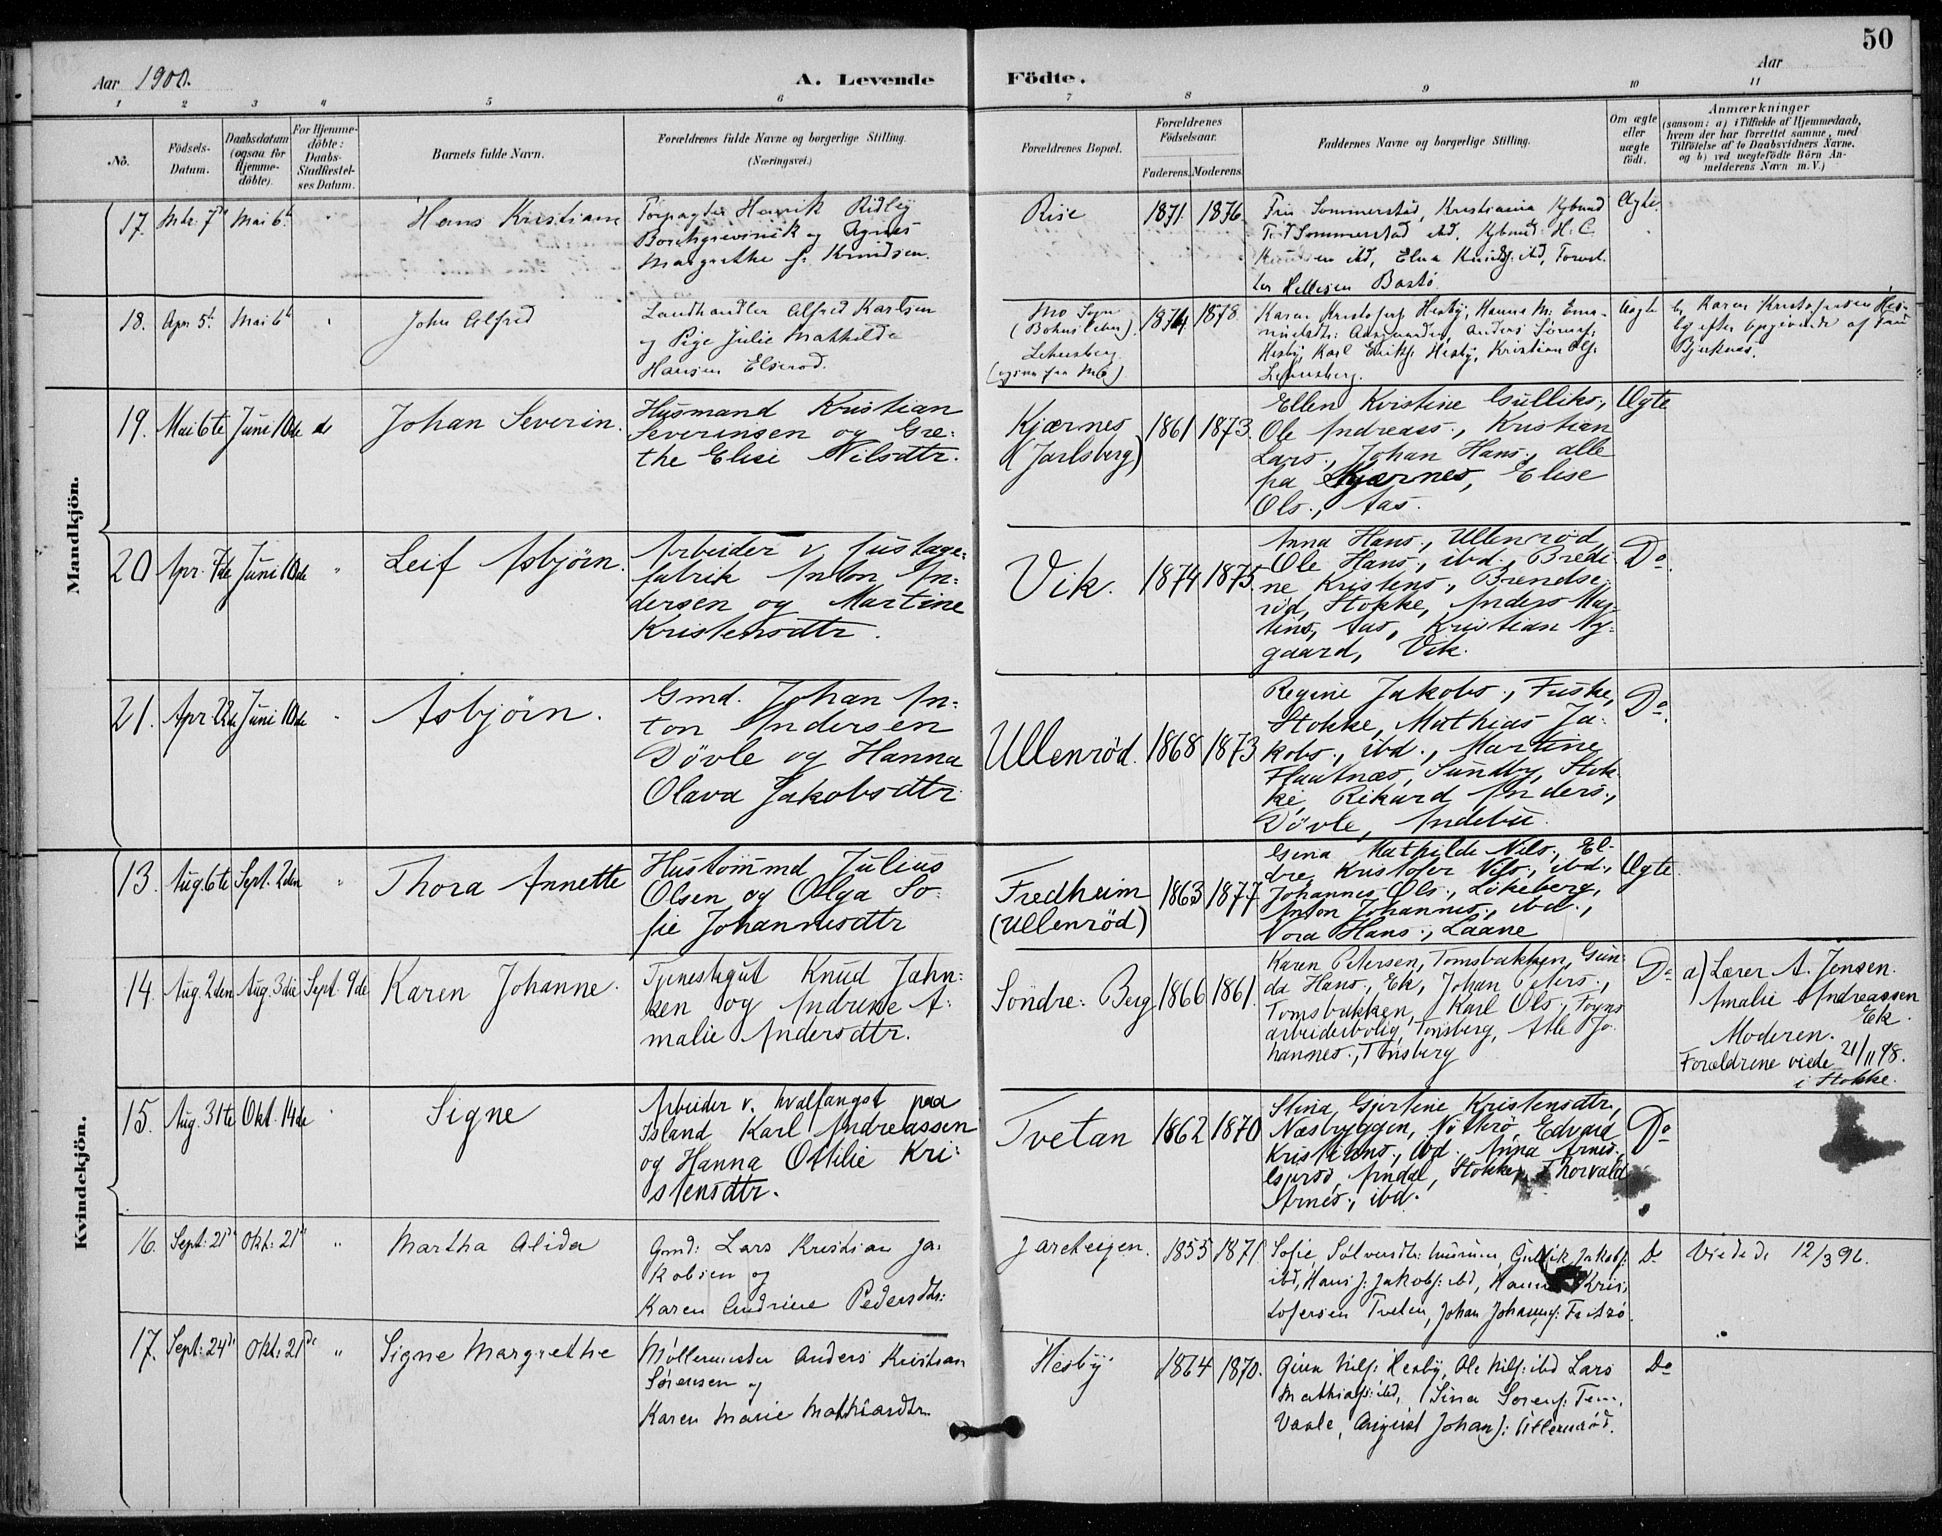 50
Aar 1900.
A. Levende Födte.
Aar
1 2 3 4 5 6 7 8 9 10 11
No.
Födsels-Datum.
Daabsdatum (ogsaa for Hjemme-döbte).
For Hjemme-döbte: Daabs-Stadfæstel-ses Datum.
Barnets fulde Navn.
Forældrenes fulde Navne og borgerlige Stilling.
(Næringsvei.)
Forældrenes Bopæl.
Forældrenes Födselsaar.
Faderens. Moderens.
Faddernes Navne og borgerlige Stilling.
Om ægte eller uægte födt.
Anmærkninger
(saasom: a) i Tilfælde af Hjemmedaab,
hvem der har forrettet samme, med
Tilföielse af to Daabsvidners Navne.
og b) ved uægtefödte Börn An-
melderens Navn m. V.)
Mandkjön.
17. Mai 6t Hans Kristian
Henrik Ridley
og Agnes
Margrethe f. Knudsen.
Rise 1871 1876
Sommerstad, Kristiania
Sommerstad ibd. H. C.
ibd, ibd,
Bastö
Ægte.
18. Apr 5t Mai 6t John Alfred
Landhandler Alfred Karlsen
og Pige Julie Mathilde
Hansen Elserod.
Mo Sogn
1874 1878
Karen Hesby, Hanna M.
Anders
Hesby, Karl Hesby, Kristian Ols:
Uægte
b, Karen Kristofersen Hes-
by efter Opgivende af Fru
19. Mai 6te Juni 10de do Johan Severin.
Husmand Kristian
Severinsen og Gre-
the Elise Nilsdtr.
Kjærnes
(Jarlsberg)
1861 1873.
Ellen Kristine Gulliks.,
Ole Andreass., Kristian
Lars., Johan Hans., alle
pa Kjærnes, Elise
Ols., Aas.
Ægte
20 Apr. 7de Juni 10de " Leif Asbjörn.
Arbeider v.
fabrik Anton An-
dersen og Martine
Kristensdtr.
Vik. 1874 1875.
Anna Hans., Ullenröd
Ole Hans., ibd., Bredi-
ne Kristens.,
röd, Stokke, Anders Mar-
tins, Aas, Kristian Ny-
gaard, Vik.
Do.
21. Apr. 22de Juni 10de " Asbjörn.
Gmd. Johan An-
ton Andersen
Dövle og Hanna
Olava Jakobsdtr.
Ullenröd. 1868 1873
Regine Jakobs., Fuske,
Stokke, Mathias Ja-
kobs., ibd., Martine
Flaatnæs, Sundby, Stok-
ke, Rikard Anders.,
Dövle, Andebu.
Do.
Kvindekjön.
13. Aug. 6te Sept. 2den " Thora Annette
Hustömmd Julius
Olsen og Olga So-
fie Johannesdtr
Fredheim
(Ullenröd)
1863 1877
Gina Mathilde Nils., El-
dre, Kristofer Nils., ibd.,
Johannes Ols., Lökeberg,
Anton Johannes., ibd.,
Nora Hans., Laane
Ægte
14. Aug. 2den Aug. 3die Sept. 9de Karen Johanne.
Tjenestegut Knud Jahn-
sen og Andrine A-
malie Andersdtr.
Söndre: Berg 1866 1861.
Karen Petersen, Tomsbakken, Gun-
da Hans., Ek, Johan Peters.,
Tomsbakken, Karl Ols.,
arbeiderbolig, Tönsberg, Atle Jo-
hannes., Tönsberg
Do
a) Lærer A. Jensen.
Amalie Andreassen
Ek.
Moderen.
Forældrene viede 21/11 98.
i Stokke.
15. Aug. 31te Okt. 14de Signe
Arbeider v. hvalfangst paa
Island Karl Andreassen
og Hanna Ottilie Kri-
stensdtr.
Tvetan 1862 1870
Stina Gjertine Kristensdtr,
Næsbryggen, Nötterö, Edvard
Kristians., ibd. Anna Arnes.
Arndal, Stokke, Thorvald
Arnes., ibd.
Do
16. Sept: 21de Okt: 21de " Martha Alida
Gmd: Lars Kristian Ja-
kobsen og
Karen Andrine Pedersdtr:
Jareteigen. 1855 1871.
Sofie Gullik Jakobs:
ibd, Hans J: Jakobs: ibd, Hanna Kris-
tofersen Tveten, Johan Johannes:
Do
Viede d. 12/3 96.
17. Sept: 24de Okt: 21de " Signe Margrethe
Möllermester Anders Kristian
Sörensen og
Karen Marie Mathiasdtr.
Hesby 1864 1870.
Nils: Hesby, Ole Nils: ibd Lars
Mathias: ibd, Sina Sörens:
Vaale, August Johans: Ullenröd.
Do